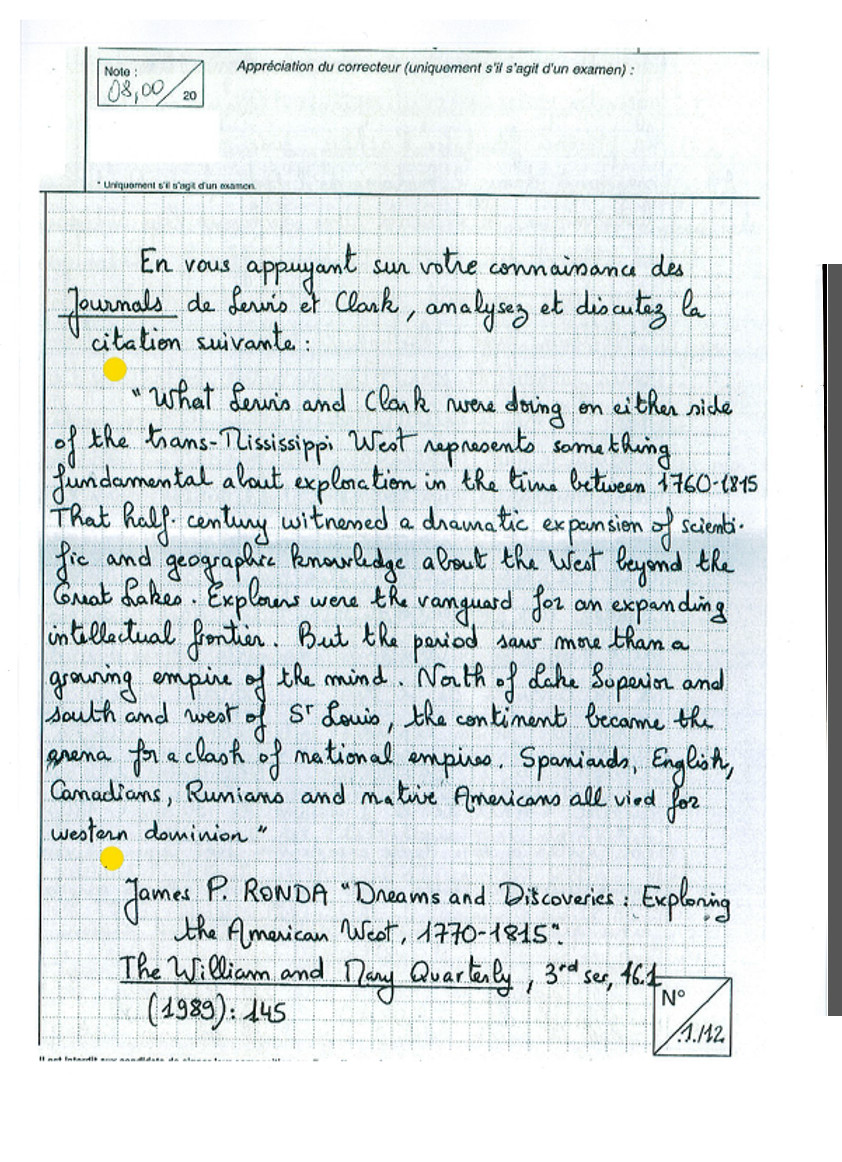 Note :
08,00 / 20
Appréciation du correcteur (uniquement s'il s'agit d'un examen) :
* Uniquement s'il s'agit d'un examen.
En vous appuyant sur votre connaissance des
Journals de Lewis et Clark, analysez et discutez la
citation suivante :
"What Lewis and Clark were doing on either side
of the trans-Mississippi West represents something
fundamental about exploration in the time between 1760-1815
That half-century witnessed a dramatic expansion of scienti-
fic and geographic knowledge about the West beyond the
Great Lakes. Explorers were the vanguard for an expanding
intellectual frontier. But the period saw more than a
growing empire of the mind. North of Lake Superior and
south and west of St Louis, the continent became the
arena for a clash of national empires. Spaniards, English,
Canadians, Russians and native Americans all vied for
western dominion"
James P. RONDA "Dreams and Discoveries : Exploring
the American West, 1770-1815".
The William and Mary Quarterly, 3rd ser, 46.1
(1989): 145
N°
1/12